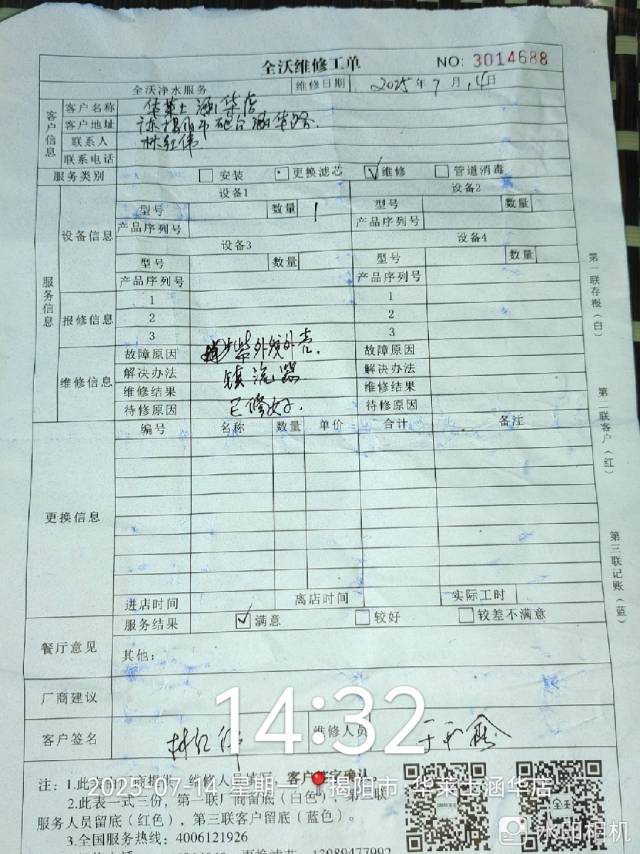 全沃维修工单 NO: 3014688
全沃净水服务 维修日期 2025年7月14日
客户信息
客户名称 华莱士涵华店
客户地址
联系人 林红伟
联系电话
服务类别 安装 更换滤芯 维修 管道消毒
服务信息
设备信息
设备1 设备2
型号 数量 1 型号 数量
产品序列号 产品序列号
设备3 设备4
型号 数量 型号 数量
产品序列号 产品序列号
报修信息
1 1
2 2
3 3
维修信息
故障原因 紫外线外壳. 故障原因
解决办法 镇流器 解决办法
维修结果 维修结果
待修原因 已修好. 待修原因
更换信息
编号 名称 数量 单价 合计 备注
进店时间 离店时间 实际工时
服务结果 满意 较好 较差不满意
餐厅意见
其他:
厂商建议
客户签名 林红伟 维修人员
14:32
客户签字确认
2025-07-14 星期一 揭阳市·华莱士涵华店
2.此表一式三份,第一联厂商留底(白色),第二联
服务人员留底(红色),第三联客户留底(蓝色)。
3.全国服务热线:4006121926
13989477992
水印相机
第一联存根(白)
第二联客户(红)
第三联记账(蓝)